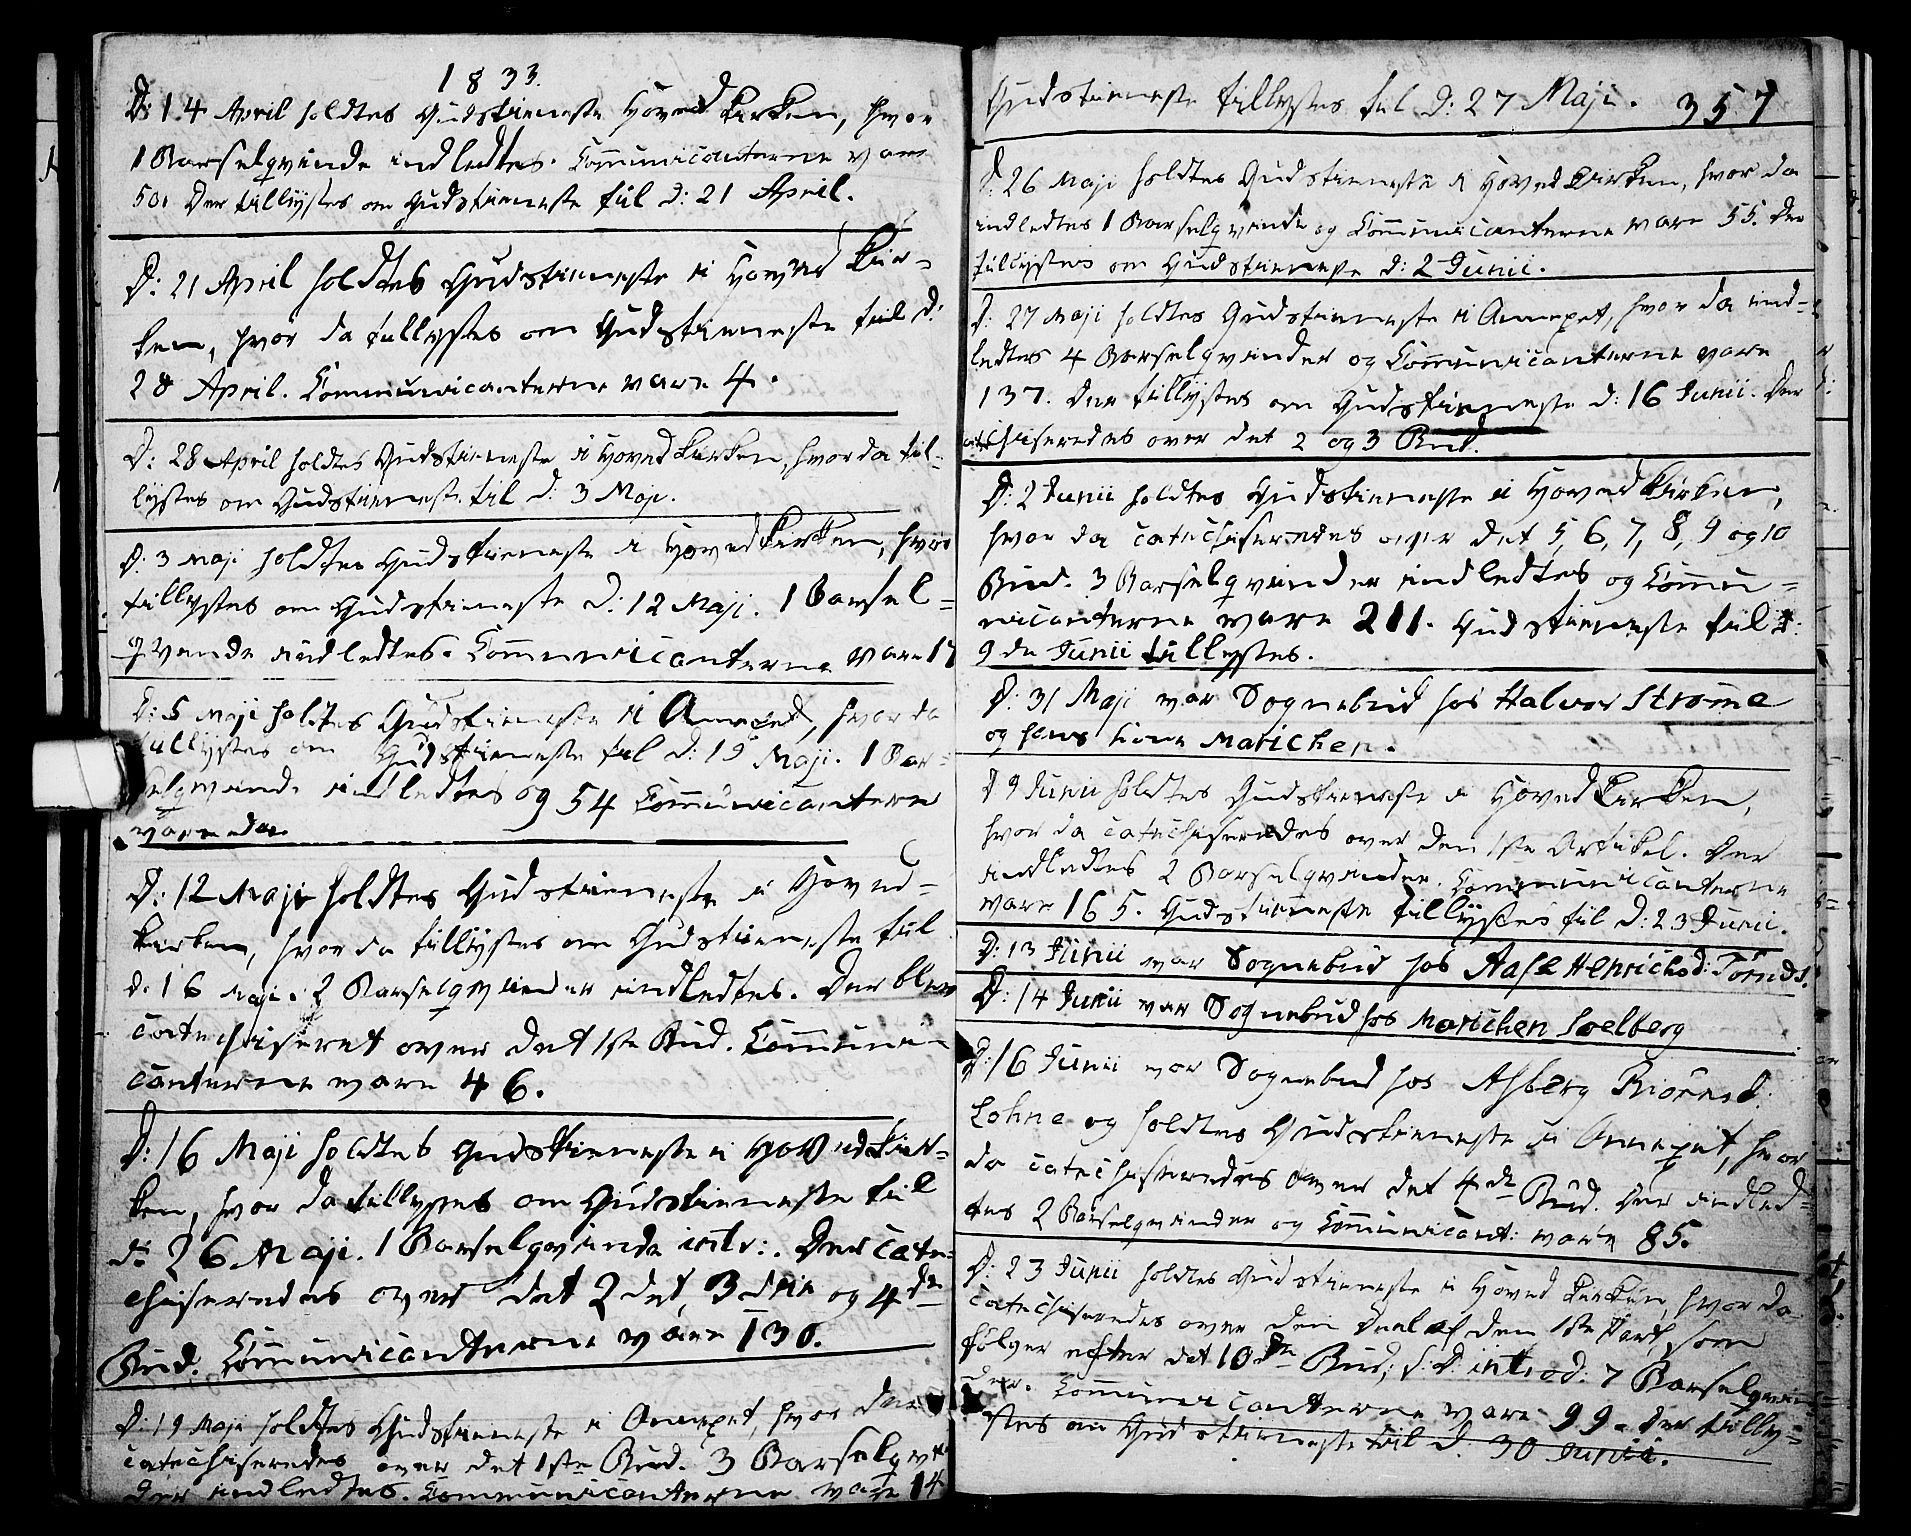 1833.
D: 14 April holdtes Gudstieneste Hoved Kirken, hvor
1 Barselqvinde indledtes. Communicanterne vare
50. Der tillystes om Gudstieneste til d: 21 April.
D: 21 April holdtes Gudstieneste i Hoved Kir-
ken, hvor da tillystes om Gudstieneste til d:
28 April. Communicanterne vare 4.
D: 28 April holdtes Gudstieneste i Hoved Kirken, hvor da til-
lystes om Gudstieneste til d: 3 Maji.
D: 3 Maji holdtes Gudstieneste i Hoved Kirken, hvor
tillystes om Gudstieneste d: 12 Maji. 1 Barsel-
qvinde indledtes. Communicanterne vare 17
D: 5 Maji holdtes Gudstieneste i Annexet, hvor da
tillystes om Gudstieneste til d: 19 Maji. 1 Bar-
selqvinde indledtes og 54 Communicantere
vare der.
D: 12 Maji holdtes Gudstieneste i Hoved-
kirken, hvor da tillystes om Gudstieneste til
d: 16 Maji. 2 Barselqvinder indledtes. Der blev
catechiseret over det 1ste Bud. Communi-
canterne vare 46.
D: 16 Maji holdtes Gudstieneste i Hovedkir-
ken, hvor da tillystes om Gudstieneste til
d: 26 Maji. 1 Barselqvinde intr:. Der cate-
chiseredes over det 2det, 3die og 4de
Bud. Communicanterne vare 130.
D: 19 Maji holdtes Gudstieneste i Annexet, hvor der
catechiseredes over det 1ste Bud. 3 Barselqvin
der indledtes. Communicanterne vare 14
Gudstieneste tillystes til d: 27 Maji. 357
D: 26 Maji holdtes Gudstieneste i Hoved Kirken, hvor da
indledtes 1 Barselqvinde og Communicanterne vare 55. Der
tillystes om Gudstieneste d: 2 Junii.
D: 27 Maji holdtes Gudstieneste i Annexet, hvor da ind-
ledtes 4 Barselqvinder og Communicanterne vare
137. Der tillystes om Gudstieneste d: 16 Junii. Der
catechiseredes over det 2 og 3 Bud.
D: 2 Junii holdtes Gudstieneste i Hoved Kirken,
hvor da catechiseredes over det 5, 6, 7, 8, 9 og 10
Bud. 3 Barselqvinder indledtes og Commu-
nicanterne vare 211. Gudstieneste til d:
9de Junii tillystes.
D: 31 Maji var Sognebud hos Halvor Strømme
og hans kone Marichen.
D 9 Junii holdtes Gudstieneste i Hoved Kirken,
hvor da catechiseredes over den 1ste Artikel. Der
indledtes 2 Barselqvinder. Communicanterne
vare 165. Gudstieneste tillystes til d: 23 Junii.
D: 13 Junii var Sognebud hos Aase Henrichsd:
D: 14 Junii var Sognebud hos Marichen Soelberg
D: 16 Junii var Sognebud hos Asberg Biørnsd:
Lohne og holdtes Gudstieneste i Annexet, hvor
da catechiseredes over det 4de Bud. Der indled-
tes 2 Barselqvinder og Communicant: vare 85.
D: 23 Junii holdtes Gudstieneste i Hoved Kirken, hvor da
catechiseredes over den Deel af den 1ste Part, som
følger efter det 10de Bud; s: D: introd: 7 Barselqvin-
der. Communicanterne vare 99. Der tilly-
stes om Gudstieneste til d: 30 Junii.